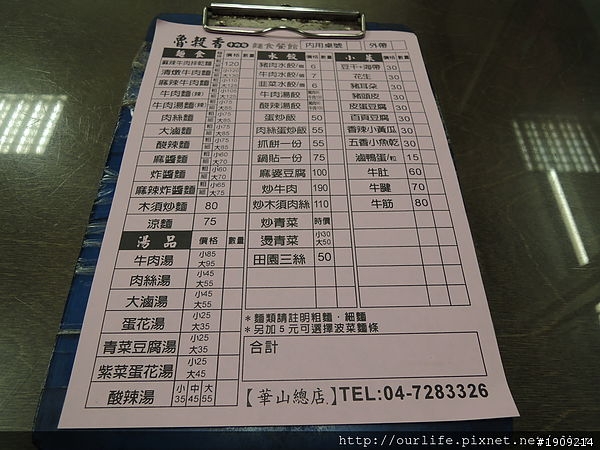 魯穀香 麵食餐館 內用桌號 外帶
麵食 價格 數量
麻辣牛肉拌乾麵 120
清燉牛肉麵
麻辣牛肉麵
牛肉麵(辣)
牛肉湯麵(辣)
肉絲麵
大滷麵
酸辣麵
麻醬麵 小60 大70
炸醬麵 小55 大65
麻辣炸醬麵 小65 大75
木須炒麵 80
涼麵 75
湯品 價格 數量
牛肉湯 小85 大95
肉絲湯 小45 大55
大滷湯 小45 大55
蛋花湯 小25 大35
青菜豆腐湯 小25 大35
紫菜蛋花湯 小25 大45
酸辣湯 小35 中45 大55
水餃 價格 數量
豬肉水餃/個 6
牛肉水餃/個 7
韭菜水餃/個 6
牛肉湯餃
酸辣湯餃
蛋炒飯 50
肉絲蛋炒飯 55
抓餅一份 55
鍋貼一份 75
麻婆豆腐 100
炒牛肉 190
炒木須肉絲 110
炒青菜 時價
燙青菜 小30 大50
田園三絲 50
小菜 價格 數量
豆干+海帶 30
花生 30
豬耳朵 30
豬頭皮 30
皮蛋豆腐 30
百頁豆腐 30
香辣小黃瓜 30
五香小魚乾 30
滷鴨蛋/粒 15
牛肚 60
牛腱 70
牛筋 80
*麵類請註明粗麵.細麵
*另加5元可選擇波菜麵條
合計
【華山總店.】TEL:04-7283326
http://ourlife.pixnet.net
#1909214